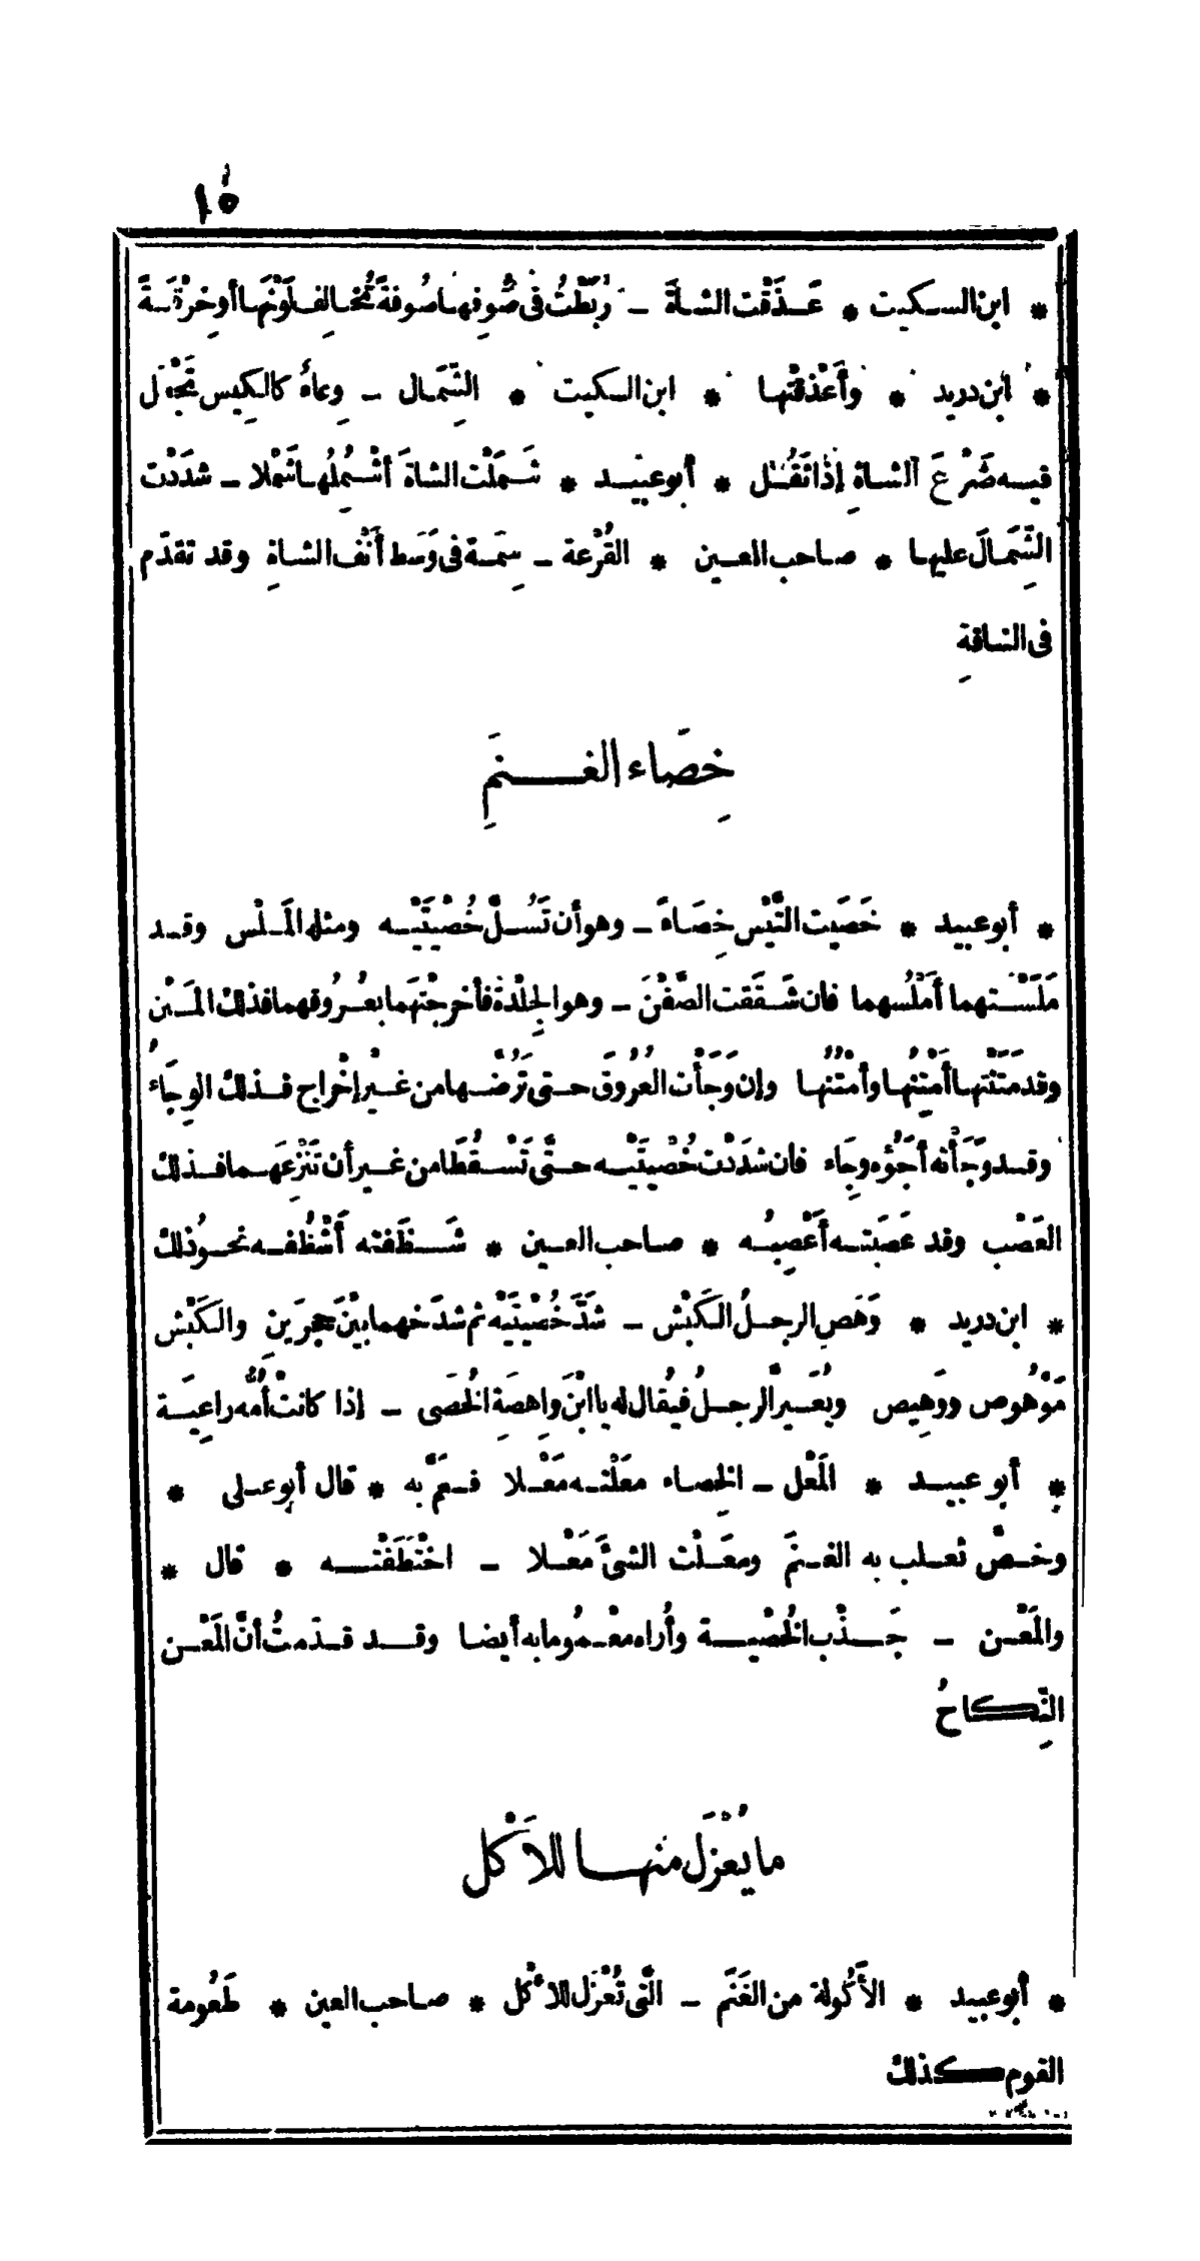 ١٥
* ابن السكيت * عَذَقْت الشاةَ – رَبَطْتُ فى صُوفِها صُوفةً تُخالِف لَوْنَها أو خِرْقَةً
* ابن دريد * وأَعْذَقْتُها * ابن السكيت * الشِّمَال – وِعاءٌ كالكِيس تَجْعَل
فيه ضَرْعَ الشاةِ إذا ثَقُل * أبو عبيد * شَمَلْت الشاةَ أشْمُلُها شَمْلا – شدَدْت
الشِّمَالَ عليها * صاحب العين * القُرْعة – سِمَة فى وَسَط أَنْف الشاةِ وقد تقدّم
فى الناقةِ
خِصَاء الغنَمِ
* أبو عبيد * خَصَيْت التَّيْس خِصَاءً – وهو أن تَسُلَّ خُصْيَتَيْه ومثله المَلْس وقد
مَلَسْتهما أَمْلُسهما فان شَقَقت الصَّفْنَ – وهو الجِلْدة فأخرجْتَهما بعُرُوقهما فذلك المَتْن
وقد مَتَنْتها أَمْتِنُها وأَمْتُنُها وإن وَجَأْت العُرُوقَ حتى تَرُضّها من غيْر إخْراج فذلك الوِجَاءُ
وقد وَجَأْته أَجَؤُه وِجَاء فان شدَدْت خُصْيتَيْه حتَّى تَسْقُطَا من غير أن تَنْزِعَهما فذلك
العَصْب وقد عَصَبته أَعْصِبُه * صاحب العين * شَظَفته أَشْظُفه نحوُ ذلك
* ابن دريد * وَهَص الرجلُ الكَبْش – شَدَّ خُصْيَتَيْه ثم شدَخهما بيْنَ حجرَينِ والكَبْش
مَوْهُوص ووَهِيص ويُعَيَّر الرجلُ فيُقال له يا ابْنَ واهِصَة الخُصَى – إذا كانتْ أُمُّه راعِيَة
* أبو عبيد * المَعْل – الخِصاء معَلْته مَعْلا فعَمَّ به * قال أبو على *
وخصّ ثعلب به الغنَمَ ومعَلْت الشئَ مَعْلا – اخْتَطَفْته * قال *
والمَعْن – جَذْب الخُصْية وأُراه معْمُوما به أيضا وقد قدّمتُ أنَّ المَعْن
النِّكاحُ
ما يُعْزَل منها للأَكْل
* أبو عبيد * الأَكُولة من الغَنَم – الَّتى تُعْزَل للأَكْل * صاحب العين * طَعُومة
القوم كذلك